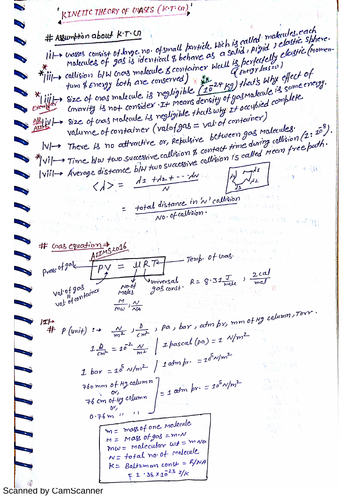 ' KINETIC THEORY OF GASES (K·T·G) '
# Assumption about K·T·G
|i|→ Gases consist of large no. of small particle which is called molecules, each
molecules of gas is identical & behave as a solid, rigid, elastic sphere.
|ii|→ collision b/w Gas molecule & container wall is perfectly elastic (momen-
tum & Energy both are conserved)
|iii|→ Size of Gas molecule is negligible (10⁻²⁴ kg) that's why effect of
gravity is not consider. It means density of gas molecule is same energy.
|iv|→ Size of Gas molecule is negligible that's why it occupied complete
volume of container (vol of gas = vol of container)
|v|→ There is no attractive or, Repulsive between gas molecules.
|vi|→ Time b/w two successive collision & contact time during collision
|vii|→ Average distance b/w two successive collision is called mean free path.
<λ> = λ1 + λ2 + --- λN / N
= total distance in 'N' collision / No. of collision.
# Gas equation →
AIIMS 2016
PV = μRT
Pres of gas
Temp. of Gas
vol of gas = vol of container
No. of moles
universal gas const.
R = 8.31 J/mole, 2 cal/mol
M/mw, N/NA
# P (unit) : → N/m², D/cm², Pa, bar, atm pr, mm of Hg column, Torr.
1 D/cm² = 10⁻¹ N/m² | 1 pascal (Pa) = 1 N/m²
1 bar = 10⁵ N/m² | 1 atm pr. = 10⁵ N/m²
760 mm of Hg column
or,
76 cm of Hg column
or,
0.76 m " "
= 1 atm pr. = 10⁵ N/m²
m = mass of one molecule
M = Mass of gas = m·N
mw = Molecular wt = m·NA
N = total no. of molecule
K = Boltzman const = R/NA
= 1.38 × 10⁻²³ J/K
Scanned by CamScanner